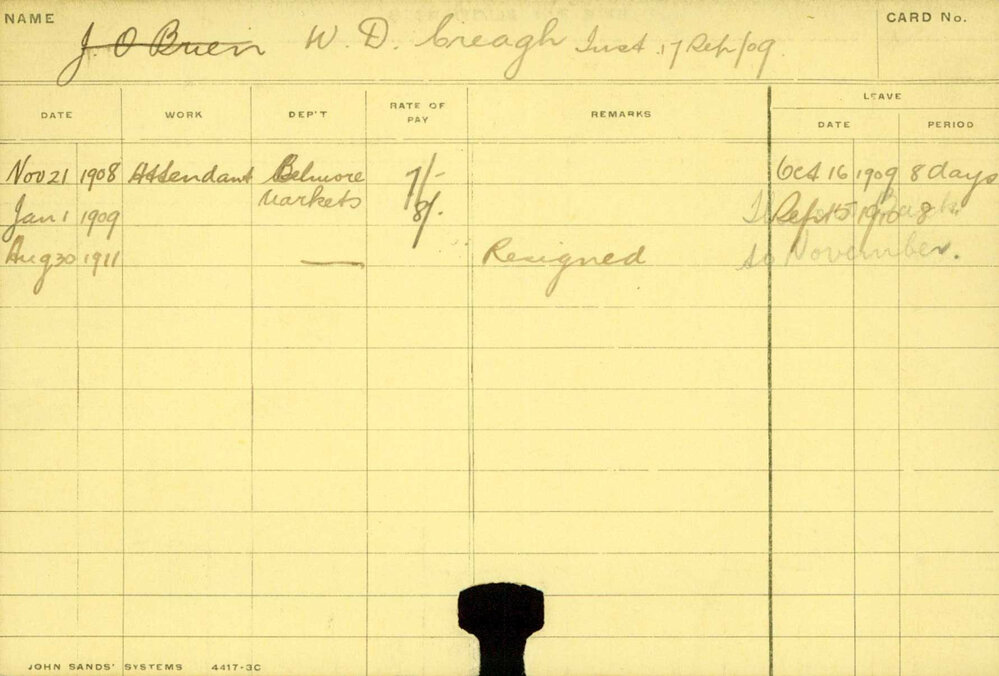 NAME
J. O Brien W. D. Creagh Inst. 17 Sep/09.
CARD No.
LEAVE
DATE WORK DEP'T RATE OF PAY REMARKS DATE PERIOD
Nov 21 1908 Attendant Belmore Markets 7/- Oct 16 1909 8 days
Jan 1 1909 8/- Sept 15 1910 8 "
Aug 30 1911 — Resigned to November.
JOHN SANDS' SYSTEMS 4417-3C